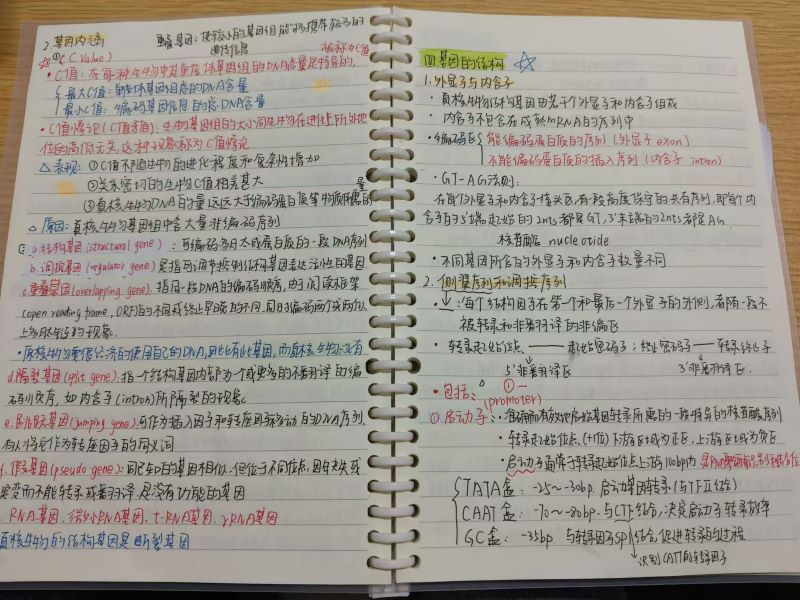 2. 基因内涵
重叠基因：使较小的基因组能够携带较多的
遗传信息
☆①(C Value) 被称为C值
• C值：在每一种生物中其单倍体基因组的DNA含量是特异的，
最大C值：单倍体基因组总的DNA含量
最小C值：编码基因信息的总DNA含量
• C值悖论(C值矛盾)：生物基因组的大小同生物在进化上所处地
位的高低无关，这种现象称为C值悖论
△ 表现：①C值不随生物的进化程度和复杂性增加
②关系密切的生物C值相差甚大
③真核生物DNA的量远远大于编码蛋白质等物质所需的量
△ 原因：真核生物基因组中含大量非编码序列
a. 结构基因(structural gene)：可编码为蛋白质的一段DNA序列
b. 调控基因(regulator gene)是指可调节控制结构基因表达活性的基因
c. 重叠基因(overlapping gene)：指同一段DNA的编码顺序，由于阅读框架
(open reading frame，ORF)的不同或终止早晚的不同，同时编码两个或两个以
上多肽链的现象.
• 原核生物要很经济的使用自己的DNA，因此有此基因，而真核生物没有
d. 隔裂基因(split gene)：指一个结构基因内部为一个或更多的不翻译的编
码顺序，如内含子(intron)所隔裂的现象.
e. 跳跃基因(jumping gene)：可作为插入因子和转座因子移动的DNA序列，
有人将它作为转座因子的同义词
f. 假基因(pseudo gene)：同已知的基因相似，但位于不同位点，因缺失或
突变而不能转录或翻译，是没有功能的基因
RNA基因、微小RNA基因、t-RNA基因、rRNA基因
真核生物的结构基因是断裂基因
四 基因的结构 ☆
1. 外显子与内含子
• 真核生物结构基因由若干个外显子和内含子组成
• 内含子不包含在成熟mRNA的序列中
• 编码区 能编码蛋白质的序列（外显子 exon）
不能编码蛋白质的插入序列（内含子 intron）
• GT-AG法则：
在每个外显子和内含子接头区，有一段高度保守的共有序列，即每个内
含子的5'端起始的2nts都是GT，3'末端的2nts都是AG.
核苷酸 nucleotide
• 不同基因所含的外显子和内含子数量不同
2. 侧翼序列和调控序列
↓：每个结构因子在第一个和最后一个外显子的外侧，都有一段不
被转录和非翻译的非编区
• 转录起始位点 —— 起始密码子；终止密码子 —— 转录终止子
5'非翻译区 3'非翻译区.
• 包括： ①—
(promoter)
① 启动子：• 准确而有效地启始基因转录所需的一段特异的核苷酸序列
• 转录起始位点(+1位)下游区域为正区，上游区域为负区
• 启动子通常于转录起始位点上游100bp内，是RNA聚合酶识别和结合位
TATA盒：-25~-30bp，启动基因转录(与TFⅡ结合)
CAAT盒：-70~-80bp，与CTF结合，决定启动子转录效率
GC盒：-35bp 与转录因子SP1结合，促进转录的过程
识别CATT的转录因子